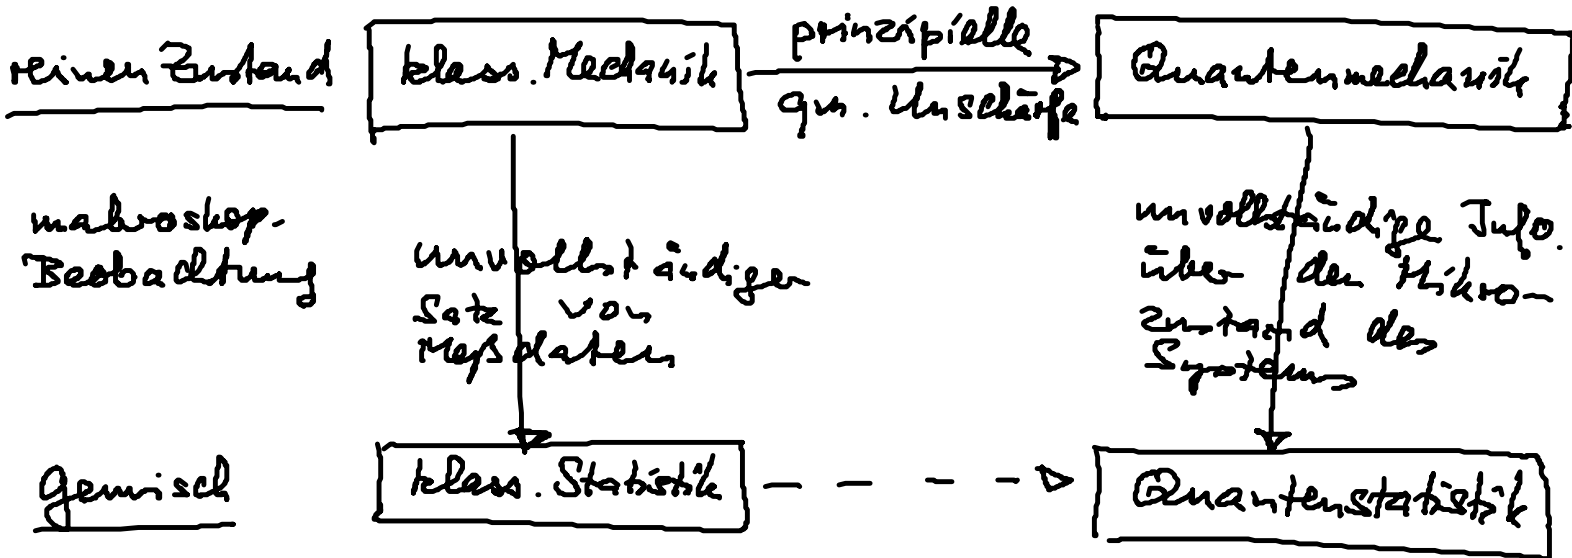 reinen Zustand
klass. Mechanik
prinzipielle
qm. Unschärfe
Quantenmechanik
makroskop.
Beobachtung
unvollständiger
Satz von
Meßdaten
unvollständige Info.
über den Mikro-
zustand des
Systems
Gemisch
klass. Statistik
Quantenstatistik